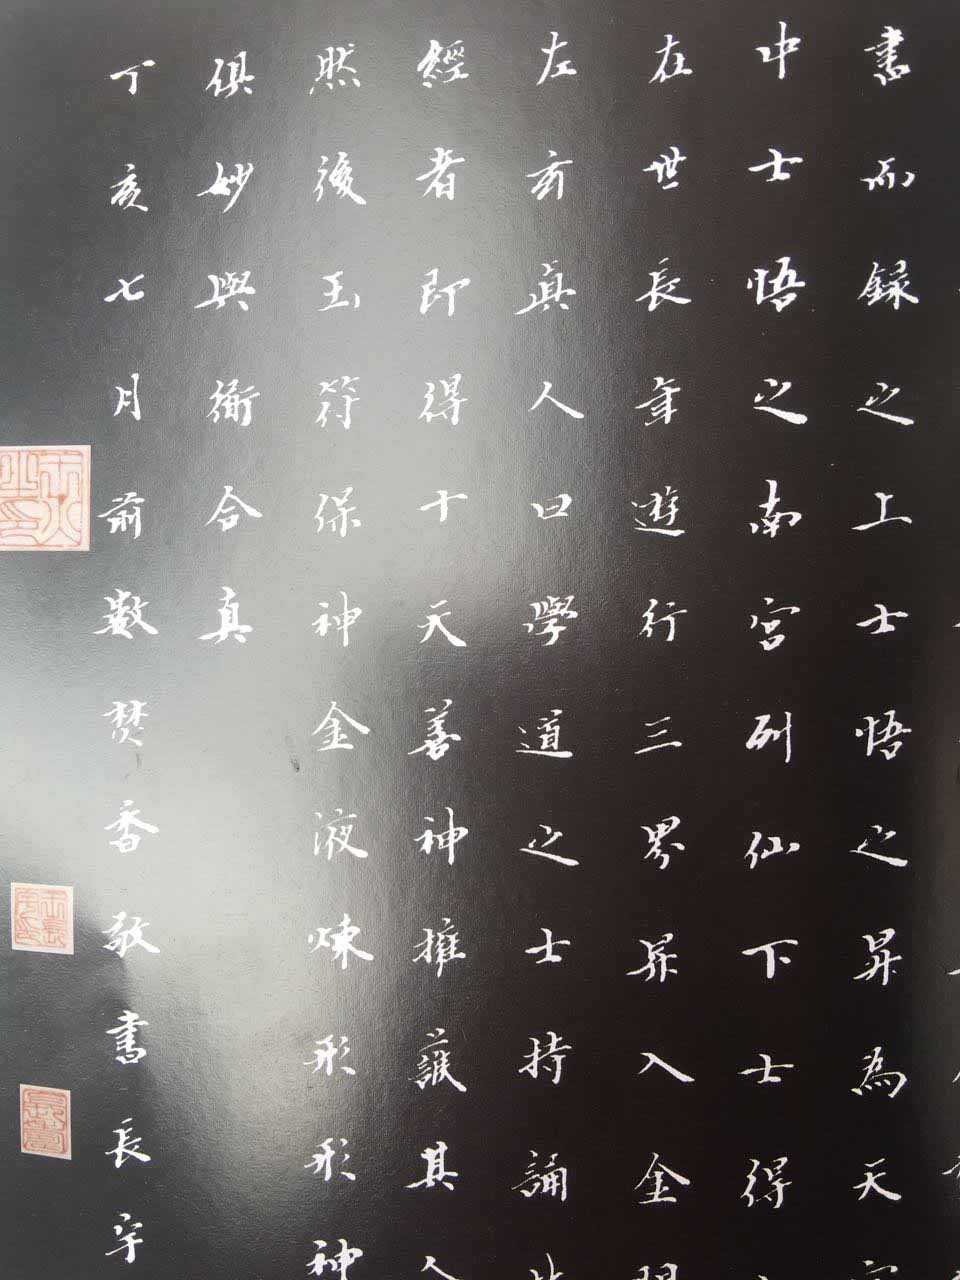 書而録之上士悟之昇為天
中士悟之南宮列仙下士得
在世長年遊行三界昇入金
左玄真人曰學道之士持誦
經者即得十天善神擁護其人
然後玉符保神金液煉形形神
俱妙與衜合真
丁亥七月前數焚香敬書長宇